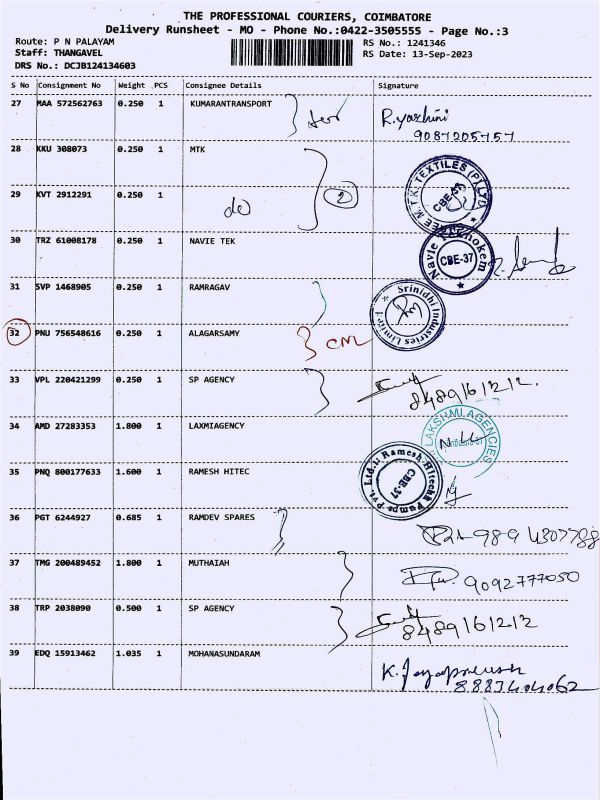 THE PROFESSIONAL COURIERS, COIMBATORE
Delivery Runsheet - MO - Phone No.:0422-3505555 - Page No.:3
Route: P N PALAYAM
Staff: THANGAVEL
DRS No.: DCJB124134603
RS No.: 1241346
RS Date: 13-Sep-2023
S No Consignment No Weight .PCS Consignee Details Signature
27 MAA 572562763 0.250 1 KUMARANTRANSPORT R.yashini
9087205757
28 KKU 308073 0.250 1 MTK
29 KVT 2912291 0.250 1 do 2 M.T.K. TEXTILES (P) LTD CBE-37
30 TRZ 61008178 0.250 1 NAVIE TEK Navie CBE-37
31 SVP 1468905 0.250 1 RAMRAGAV Srinidhi Industries Limited
32 PNU 756548616 0.250 1 ALAGARSAMY CM
33 VPL 220421299 0.250 1 SP AGENCY 8489161212.
34 AMD 27283353 1.800 1 LAXMIAGENCY LAKSHMI AGENCIES
35 PNQ 800177633 1.600 1 RAMESH HITEC Ramesh Hitech Pumps Pvt. Ltd. CBE-37
36 PGT 6244927 0.685 1 RAMDEV SPARES
37 TMG 200489452 1.800 1 MUTHAIAH 9092777050
38 TRP 2038090 0.500 1 SP AGENCY 8489161212
39 EDQ 15913462 1.035 1 MOHANASUNDARAM K. Jayaprakash
8887404062